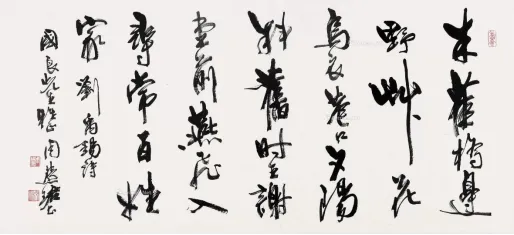 朱雀橋邊
野艸花
烏衣巷口夕陽
斜舊時王謝
堂前燕飛入
尋常百姓
家 劉禹錫詩
國良先生雅正 周慧珺